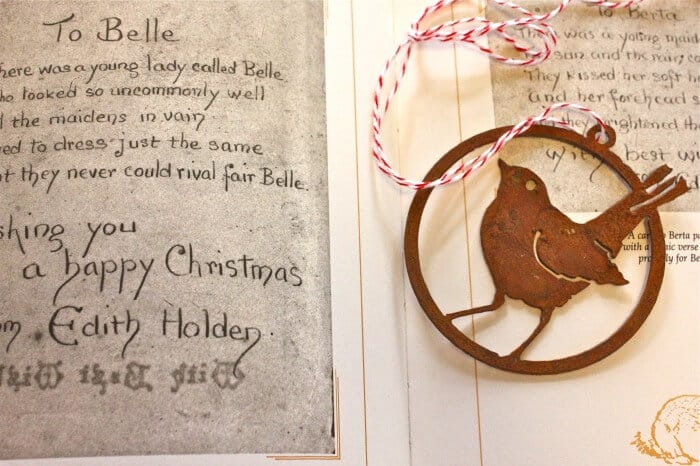 To Belle
here was a young lady called Belle
ho looked so uncommonly well
the maidens in vain
ed to dress just the same
t they never could rival fair Belle.
shing you
a happy Christmas
m Edith Holden.
With Best Wish
To Berta
was a young maide
sun and the rain, co
They kissed her soft
and her forehead
they brightened the
With best w
A car to Berta pa
with a nic verse
pro ly for Be